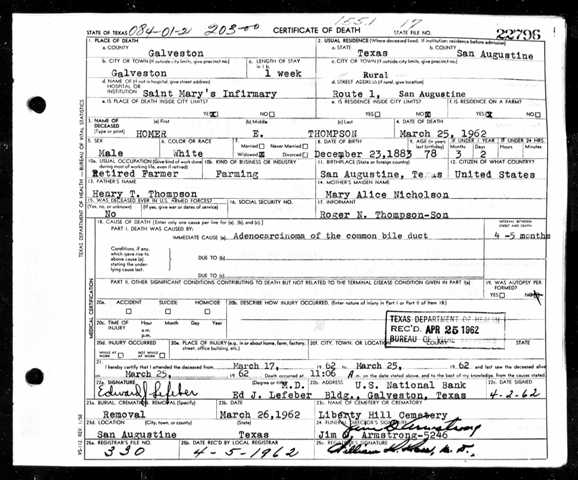 1551 17
STATE OF TEXAS 084-01-2 203-00 CERTIFICATE OF DEATH STATE FILE NO. 22796
1. PLACE OF DEATH 2. USUAL RESIDENCE (Where deceased lived. If institution: residence before admission)
a. COUNTY Galveston a. STATE Texas b. COUNTY San Augustine
b. CITY OR TOWN (If outside city limits, give precinct no.) c. LENGTH OF STAY c. CITY OR TOWN (If outside city limits, give precinct no.)
Galveston 1 week Rural
d. NAME OF (If not in hospital, give street address) HOSPITAL OR INSTITUTION Saint Mary's Infirmary d. STREET ADDRESS (If rural, give location) Route 1, San Augustine
e. IS PLACE OF DEATH INSIDE CITY LIMITS? YES NO e. IS RESIDENCE INSIDE CITY LIMITS? YES NO f. IS RESIDENCE ON A FARM? YES NO
3. NAME OF DECEASED (Type or print) (a) First (b) Middle (c) Last 4. DATE OF DEATH
HOMER E. THOMPSON March 25, 1962
5. SEX 6. COLOR OR RACE 7. Married Never Married Widowed Divorced 8. DATE OF BIRTH 9. AGE (In years last birthday) IF UNDER 1 YEAR IF UNDER 24 HRS.
Male White December 23,1883 78 3 2
10a. USUAL OCCUPATION (Give kind of work done during most of working life, even if retired) 10b. KIND OF BUSINESS OR INDUSTRY 11. BIRTHPLACE (State or foreign country) 12. CITIZEN OF WHAT COUNTRY?
Retired Farmer Farming San Augustine, Texas United States
13. FATHER'S NAME 14. MOTHER'S MAIDEN NAME
Henry T. Thompson Mary Alice Nicholson
15. WAS DECEASED EVER IN U.S. ARMED FORCES? 16. SOCIAL SECURITY NO. 17. INFORMANT
(Yes, no, or unknown) (If yes, give war or dates of service)
No Roger N. Thompson-Son
18. CAUSE OF DEATH (Enter only one cause per line for (a), (b), and (c).) INTERVAL BETWEEN ONSET AND DEATH
PART I. DEATH WAS CAUSED BY:
IMMEDIATE CAUSE (a) Adenocarcinoma of the common bile duct 4 -5 months
Conditions, if any, which gave rise to above cause (a) stating the underlying cause last.
DUE TO (b)
DUE TO (c)
PART II. OTHER SIGNIFICANT CONDITIONS CONTRIBUTING TO DEATH BUT NOT RELATED TO THE TERMINAL DISEASE CONDITION GIVEN IN PART I(a) 19. WAS AUTOPSY PERFORMED? YES NO
20a. ACCIDENT SUICIDE HOMICIDE 20b. DESCRIBE HOW INJURY OCCURRED. (Enter nature of injury in Part I or Part II of item 18.)
20c. TIME OF INJURY Hour Month Day Year a.m. p.m.
TEXAS DEPARTMENT OF HEALTH
REC'D APR 25 1962
BUREAU OF
20d. INJURY OCCURRED 20e. PLACE OF INJURY (e.g., in or about home, farm, factory, street, office building, etc.) 20f. CITY, TOWN, OR LOCATION
21. I hereby certify that I attended the deceased from March 17, 1962 to March 25, 1962 and last saw the deceased alive on
March 25, 1962 Death occurred at 11:06 A m. on the date stated above, and to the best of my knowledge, from the causes stated.
22a. SIGNATURE (Degree or title) 22b. ADDRESS 22c. DATE SIGNED
Edward J Lefeber M.D. Ed J. Lefeber U.S. National Bank Bldg., Galveston, Texas 4-2-62
23a. BURIAL, CREMATION, REMOVAL (Specify) 23b. DATE 23c. NAME OF CEMETERY OR CREMATORY
Removal March 26,1962 Liberty Hill Cemetery
23d. LOCATION (City, town, or county) (State) 24. FUNERAL DIRECTOR'S SIGNATURE
San Augustine Texas Jim O. Armstrong-5246
25a. REGISTRAR'S FILE NO. 25b. DATE REC'D BY LOCAL REGISTRAR 25c. REGISTRAR'S SIGNATURE
330 4-5-1962
TEXAS DEPARTMENT OF HEALTH — BUREAU OF VITAL STATISTICS
MEDICAL CERTIFICATION
VS-112 REV. 1/58